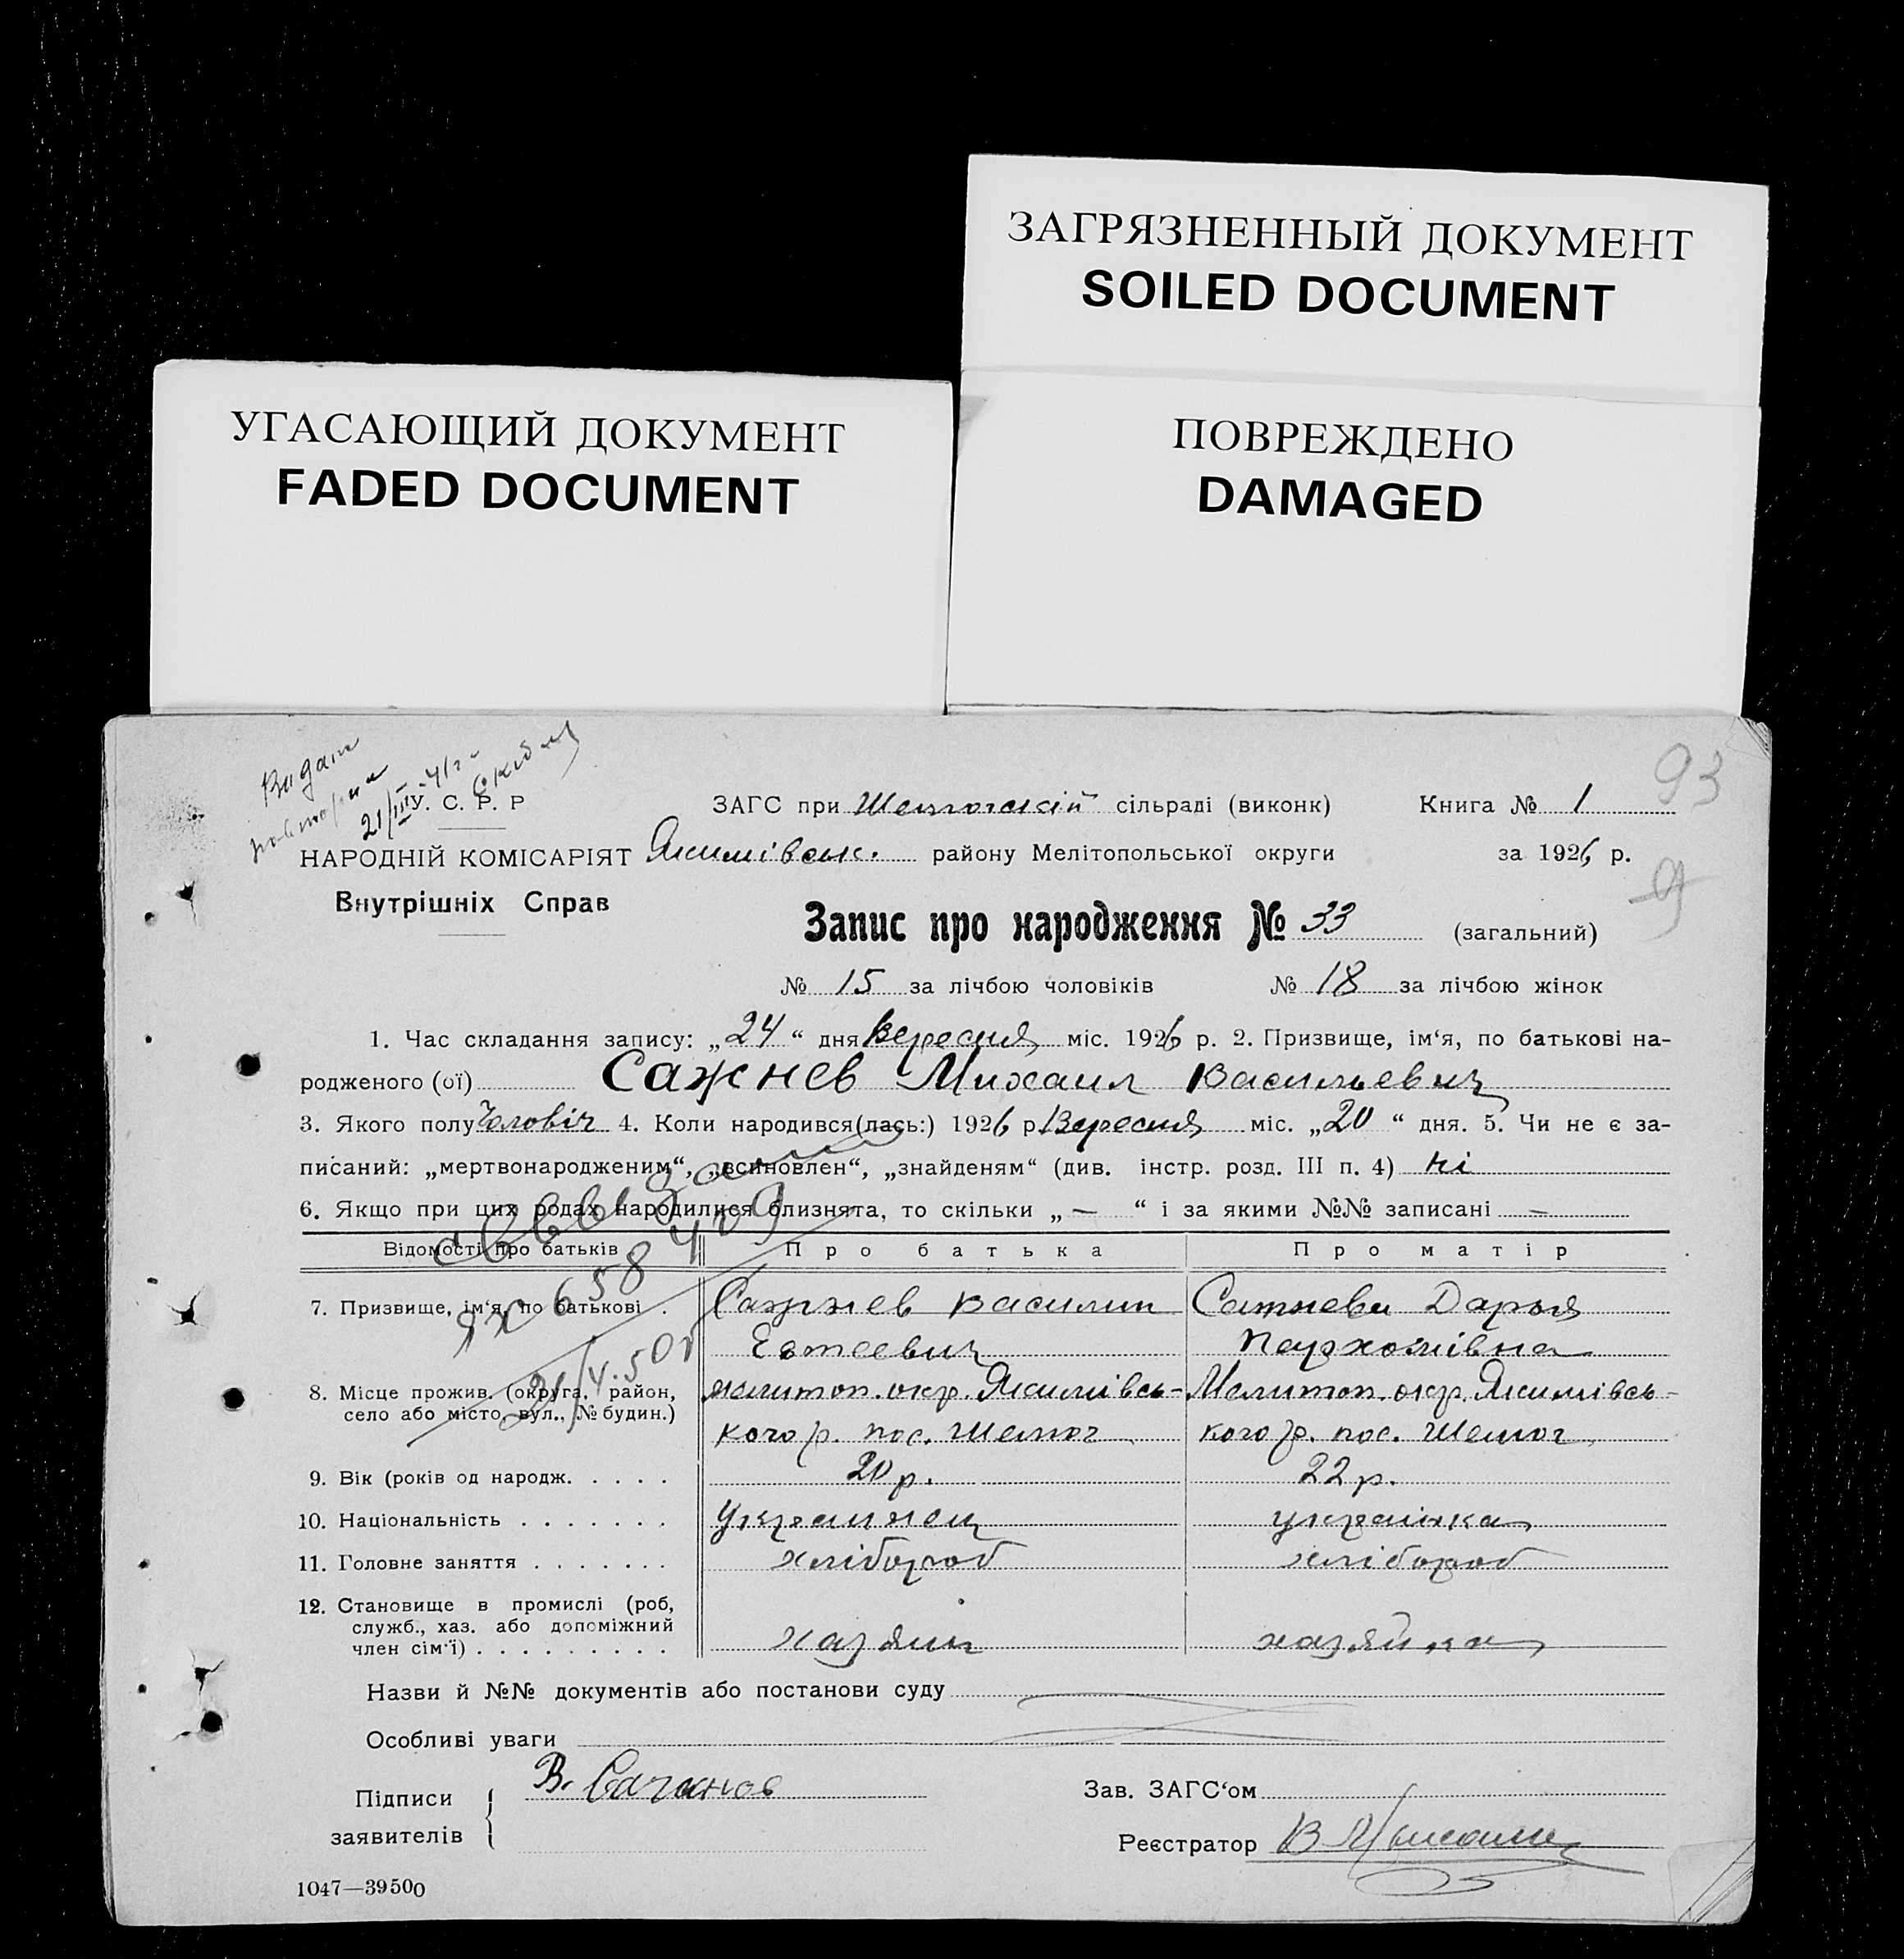 ЗАГРЯЗНЕННЫЙ ДОКУМЕНТ
SOILED DOCUMENT
УГАСАЮЩИЙ ДОКУМЕНТ
FADED DOCUMENT
ПОВРЕЖДЕНО
DAMAGED
93
21/III-41 г
У. С. Р. Р
ЗАГС при сільраді (виконк) Книга № 1
НАРОДНІЙ КОМІСАРІЯТ Якимівськ. району Мелітопольської округи за 1926 р.
Внутрішніх Справ
9
Запис про народження № 33 (загальний)
№ 15 за лічбою чоловіків № 18 за лічбою жінок
1. Час складання запису: „24“ дня Вересня міс. 1926 р. 2. Призвище, ім‘я, по батькові на-
родженого (ої) Сажнев Михаил Васильевич
3. Якого полу Чоловіч 4. Коли народився(лась:) 1926 р. Вересня міс. „20“ дня. 5. Чи не є за-
писаний: „мертвонародженим“, „всиновлен“, „знайденям“ (див. інстр. розд. III п. 4) ні
6. Якщо при цих родах народилися близнята, то скільки „—“ і за якими №№ записані —
Відомості про батьків Про батька Про матір
7. Призвище, ім‘я, по батькові . Сажнев Василий Сажнева Дарья
Евтеевич Пархомівна
8. Місце прожив. (округа, район, Мелитоп. окр. Якимівсь- Мелитоп. окр. Якимівсь-
село або місто, вул., № будин.) кого р. пос. кого р. пос.
9. Вік (років од народж. . . . . 20 р. 22 р.
10. Національність . . . . . . . Украинец українка
11. Головне заняття . . . . . . . хлібороб хлібороб
12. Становище в промислі (роб,
служб., хаз. або допоміжний
член сім‘ї) . . . . . . . . . хазяин хазяйка
Назви й №№ документів або постанови суду
Особливі уваги
Підписи В. Зав. ЗАГС‘ом
заявителів Реєстратор В
1047—39500